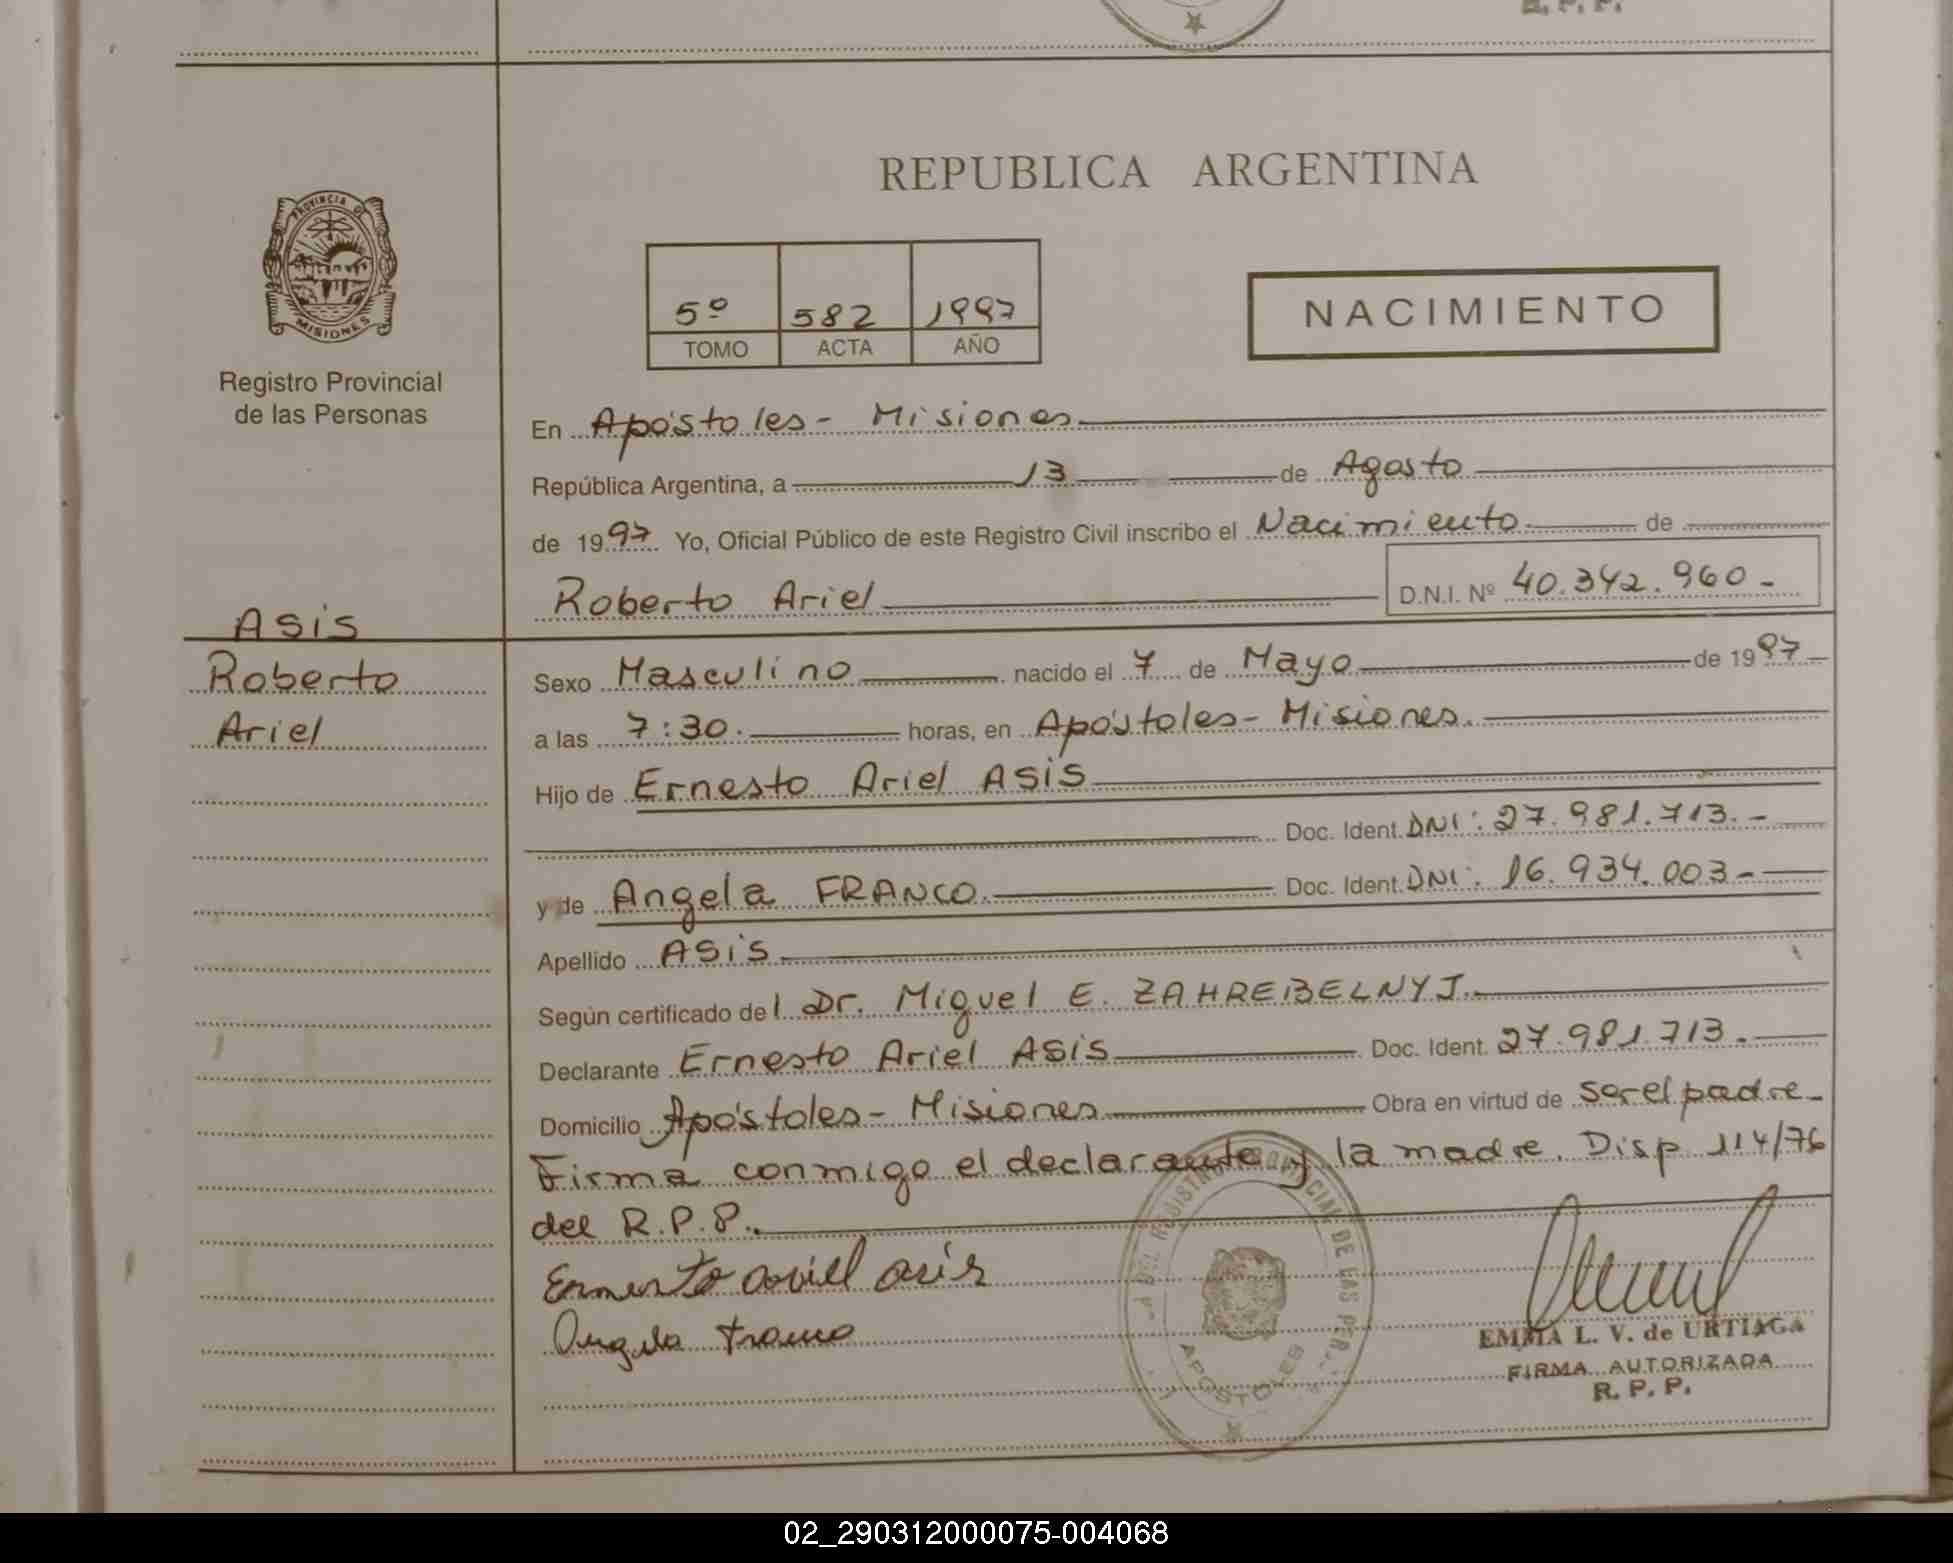 R. P. P.
REPUBLICA ARGENTINA
PROVINCIA DE
MISIONES
Registro Provincial
de las Personas
5º 582 1997
TOMO ACTA AÑO
NACIMIENTO
En Apóstoles - Misiones
República Argentina, a 13 de Agosto
de 1997 Yo, Oficial Público de este Registro Civil inscribo el Nacimiento de
Roberto Ariel D.N.I. Nº 40.342.960-
ASIS
Roberto
Ariel
Sexo Masculino nacido el 7 de Mayo de 1997
a las 7:30. horas, en Apóstoles - Misiones.
Hijo de Ernesto Ariel ASIS
Doc. Ident. DNI: 27.981.713.-
y de Angela FRANCO. Doc. Ident. DNI: 16.934.003-
Apellido ASIS.
Según certificado del Dr. Miguel E. ZAHREBELNYJ.
Declarante Ernesto Ariel ASIS Doc. Ident. 27.981.713.-
Domicilio Apóstoles - Misiones Obra en virtud de ser el padre-
Firma conmigo el declarante y la madre. Disp 114/76
del R.P.P.
Ernesto Ariel Asis
Angela Franco
DEL REGISTRO PROVINCIAL DE LAS PER
APOSTOLES
EMMA L. V. de URTIAGA
FIRMA AUTORIZADA
R. P. P.
02_290312000075-004068